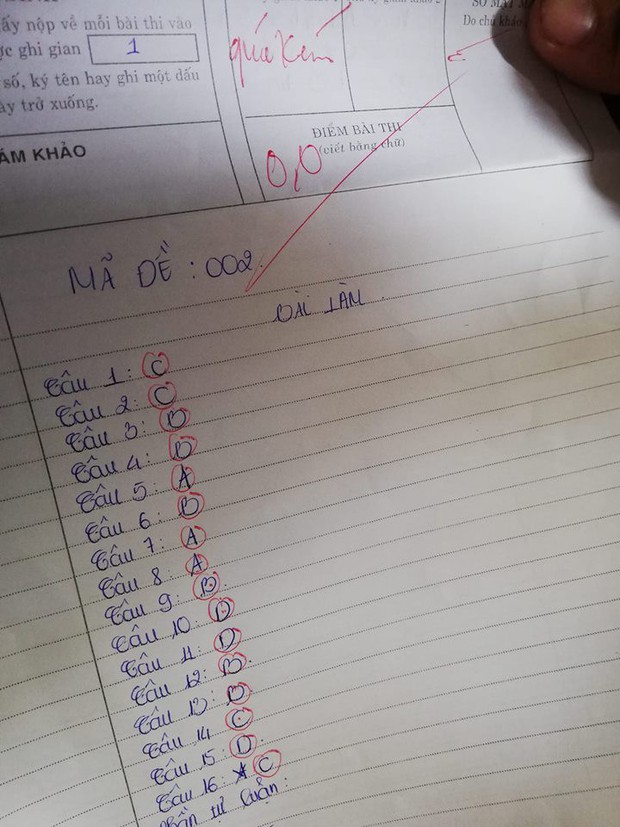 ấy nộp về mỗi bài thi vào
ợc ghi gian 1
số, ký tên hay ghi một dấu
ày trở xuống.
ÁM KHẢO
quá kém
SỐ MẬT
Do chủ khảo
ĐIỂM BÀI THI
(viết bằng chữ)
0,0
MÃ ĐỀ : 002
BÀI LÀM
Câu 1: C
Câu 2: C
Câu 3: D
Câu 4: D
Câu 5: A
Câu 6: B
Câu 7: A
Câu 8: A
Câu 9: B
Câu 10: D
Câu 11: D
Câu 12: B
Câu 13: D
Câu 14 C
Câu 15: D
Câu 16: C
Phần tự luận: